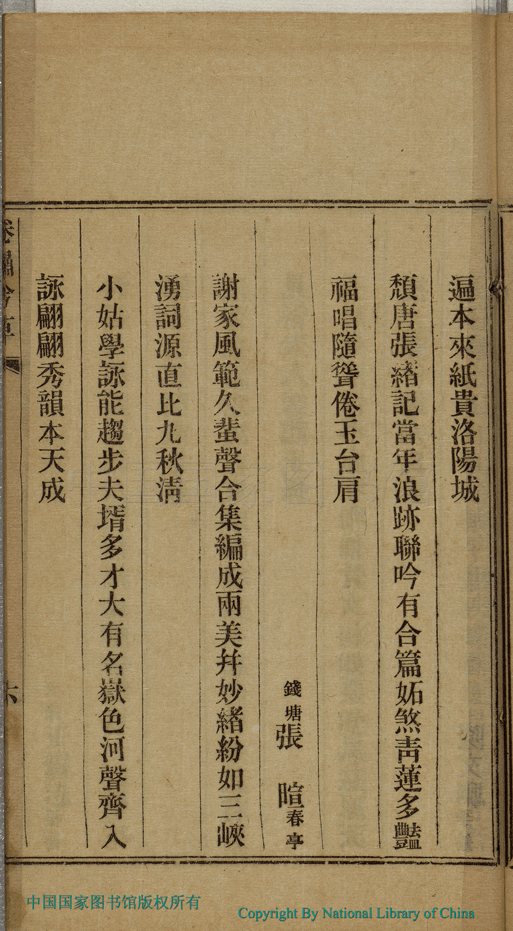 遍本來紙貴洛陽城
頹唐張緒記當年浪跡聯吟有合篇妬煞靑蓮多豔
福唱隨聳倦玉台肩
錢塘張暄春亭
謝家風範久蜚聲合集編成兩美幷妙緖紛如三峽
湧詞源直比九秋淸
小姑學詠能趨步夫壻多才大有名嶽色河聲齊入
詠翩翩秀韻本天成
六
中国国家图书馆版权所有
Copyright By National Library of China